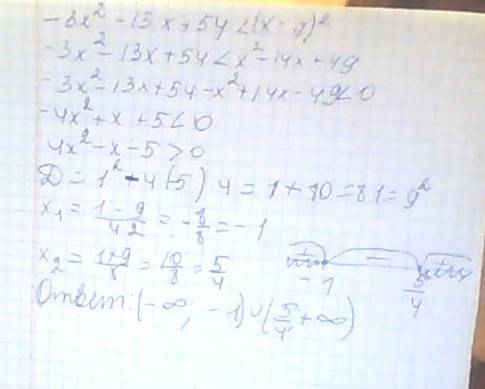 -3x² - 13x + 54 < (x - 7)²
-3x² - 13x + 54 < x² - 14x + 49
-3x² - 13x + 54 - x² + 14x - 49 < 0
-4x² + x + 5 < 0
4x² - x - 5 > 0
D = 1² - 4(5) 4 = 1 + 80 = 81 = 9²
x₁ = (1 - 9)/(4 2) = -8/8 = -1
x₂ = (1+9)/8 = 10/8 = 5/4
+ - +
-1 5/4
Ответ: (-∞, -1) ∪ (5/4 +∞)